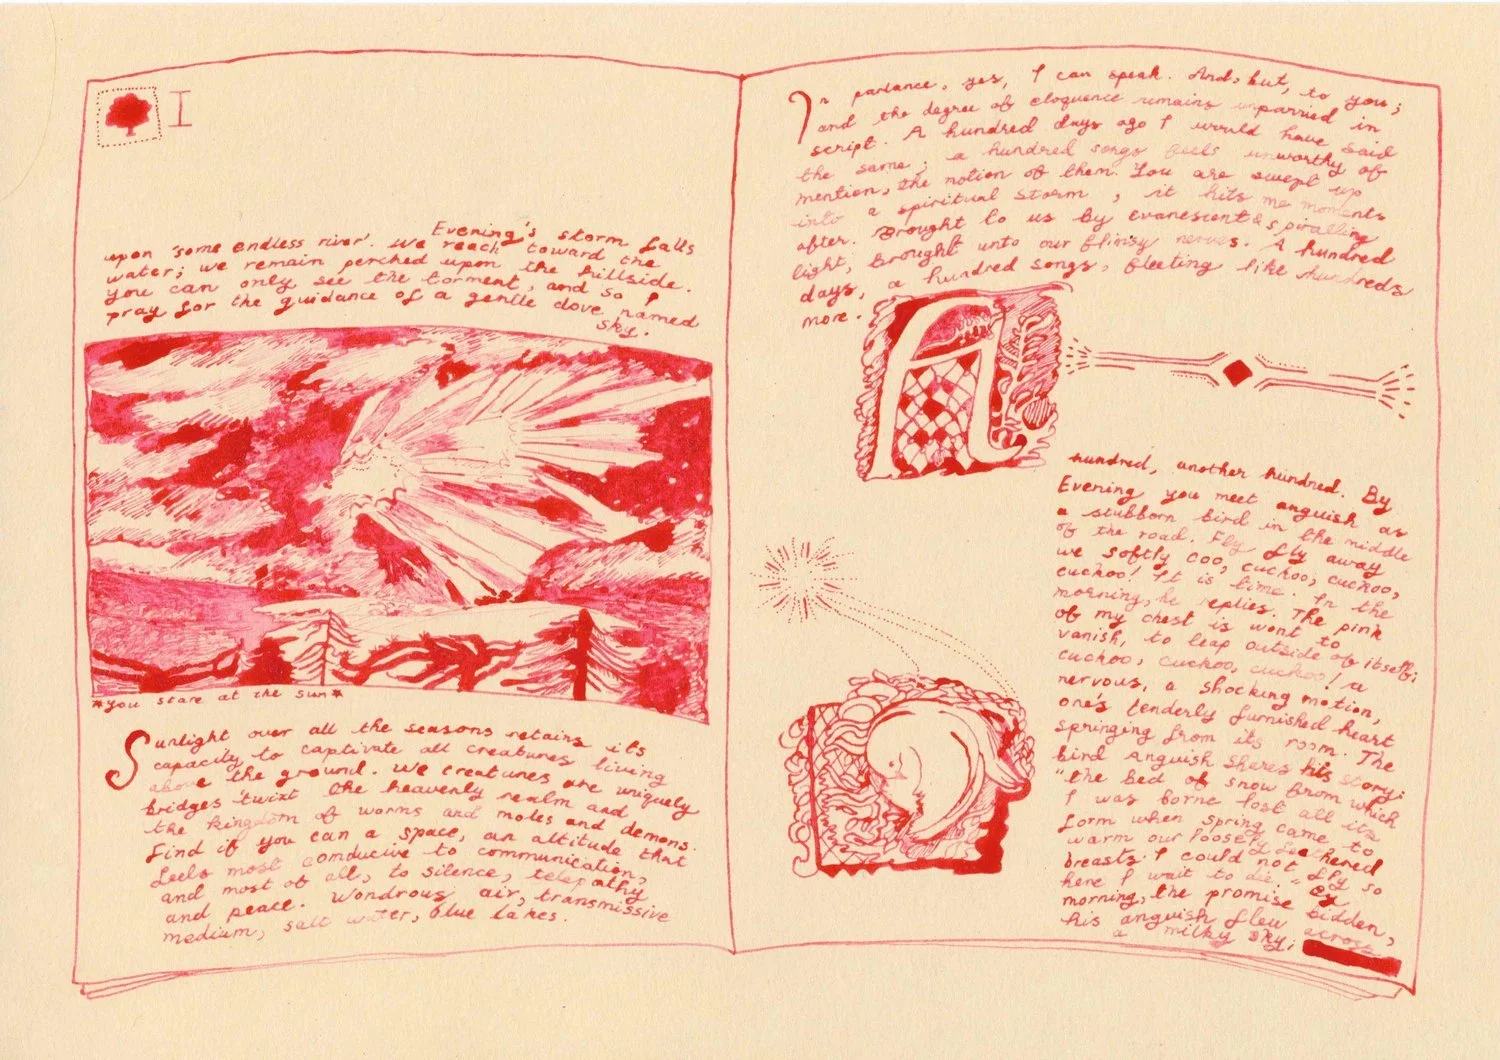 I
Evening's storm falls
upon 'some endless river'. We reach toward the
water; we remain perched upon the hillside.
you can only see the torment, and so I
pray for the guidance of a gentle dove named
sky.
*you stare at the sun*
Sunlight over all the seasons retains its
capacity to captivate all creatures living
above the ground. We creatures are uniquely
bridges 'twixt the heavenly realm and
the kingdom of worms and moles and demons.
find if you can a space, an altitude that
feels most conducive to communication,
and most of all, to silence, telepathy
and peace. Wondrous air, transmissive
medium, salt water, blue lakes.
In parlance, yes, I can speak. And, but, to you;
and the degree of eloquence remains unparried in
script. A hundred days ago I would have said
the same; a hundred songs feels unworthy of
mention, the notion of them. You are swept up
into a spiritual storm, it hits me moments
after. Brought to us by evanescent & spiralling
light, Brought unto our flimsy nerves. A hundred
days, a hundred songs, fleeting like hundreds
more.
A
hundred, another hundred. By
Evening you meet anguish as
a stubborn bird in the middle
of the road. Fly fly away
we softly coo, cuckoo, cuckoo,
cuckoo! It is time. In the
morning, he replies. The pink
of my chest is wont to
vanish, to leap outside of itself;
cuckoo, cuckoo, cuckoo! a
nervous, a shocking motion,
one's tenderly furnished heart
springing from its room. The
bird Anguish shares his story:
"the bed of snow from which
I was borne lost all its
form when spring came to
warm our loosely feathered
breasts. I could not fly so
here I wait to die." By
morning, the promise bidden,
his anguish flew across
a milky sky,